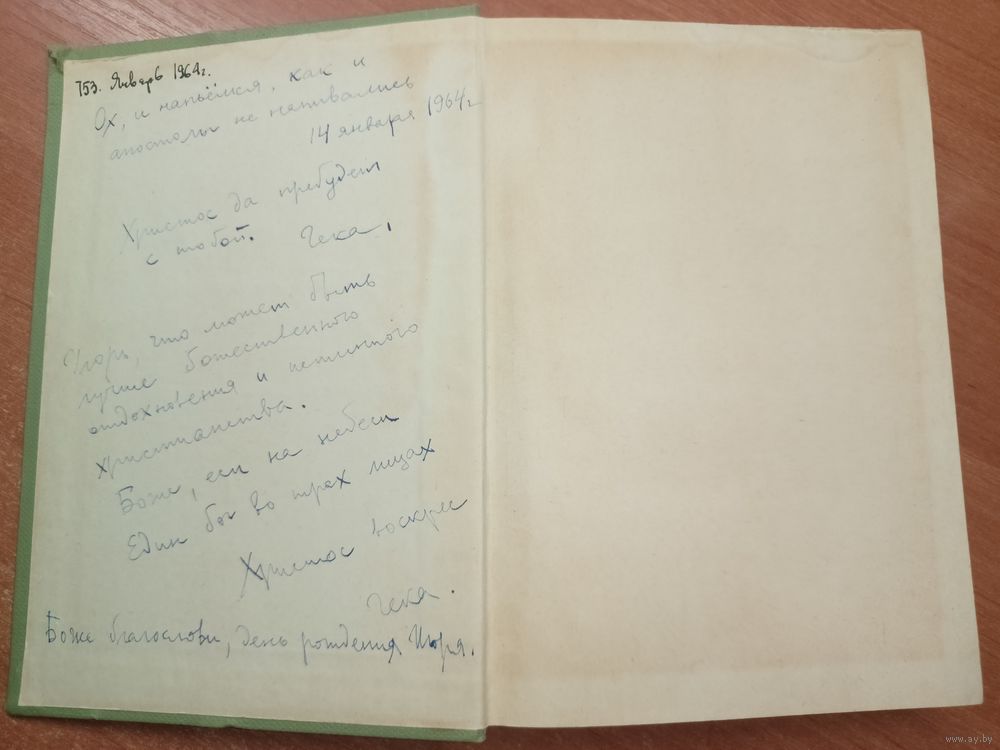 753. Январь 1964г.
Ох, и напьёмся, как и
апостолы не напивались
14 января 1964г
Христос да пребудет
с тобой. Гека,
Игорь, что может быть
лучше божественного
отдохновения и истинного
христианства.
Боже, еси на небеси
Един бог во трех лицах
Христос воскрес
Гека.
Боже благослови, день рождения Игоря.
www.ay.by